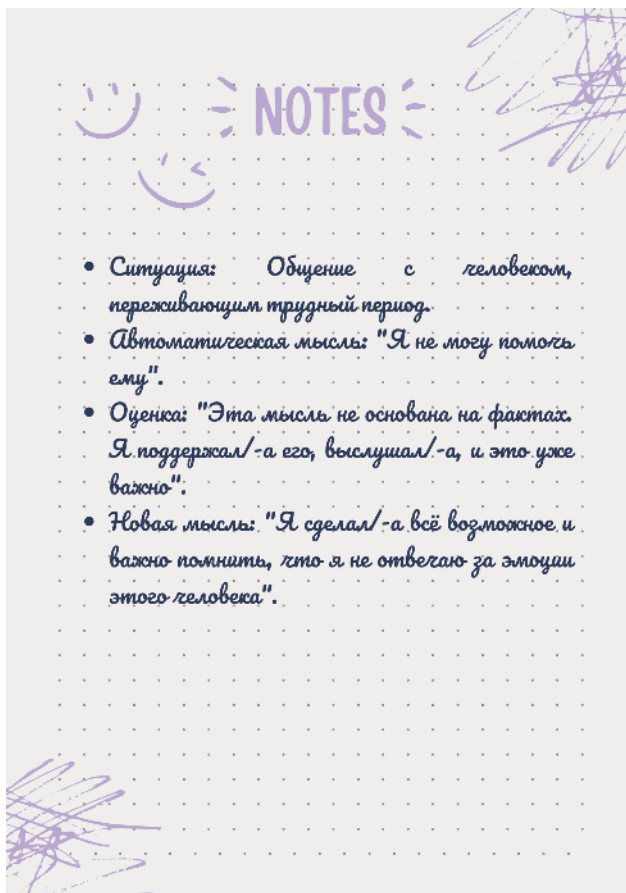 NOTES
• Ситуация: Общение с человеком,
переживающим трудный период.
• Автоматическая мысль: "Я не могу помочь
ему".
• Оценка: "Эта мысль не основана на фактах.
Я поддержал/-а его, выслушал/-а, и это уже
важно".
• Новая мысль: "Я сделал/-а всё возможное и
важно помнить, что я не отвечаю за эмоции
этого человека".